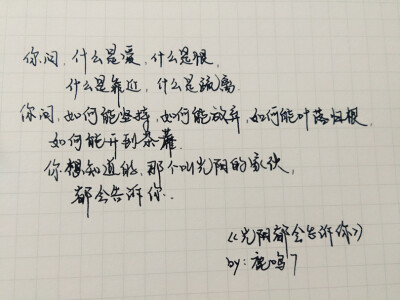 你问，什么是爱，什么是恨，
什么是靠近，什么是疏离.
你问，如何能坚持，如何能放弃，如何能叶落归根，
如何能开到荼蘼.
你想知道的，那个叫光阴的家伙，
都会告诉你..
《光阴都会告诉你》
by:鹿鸣7